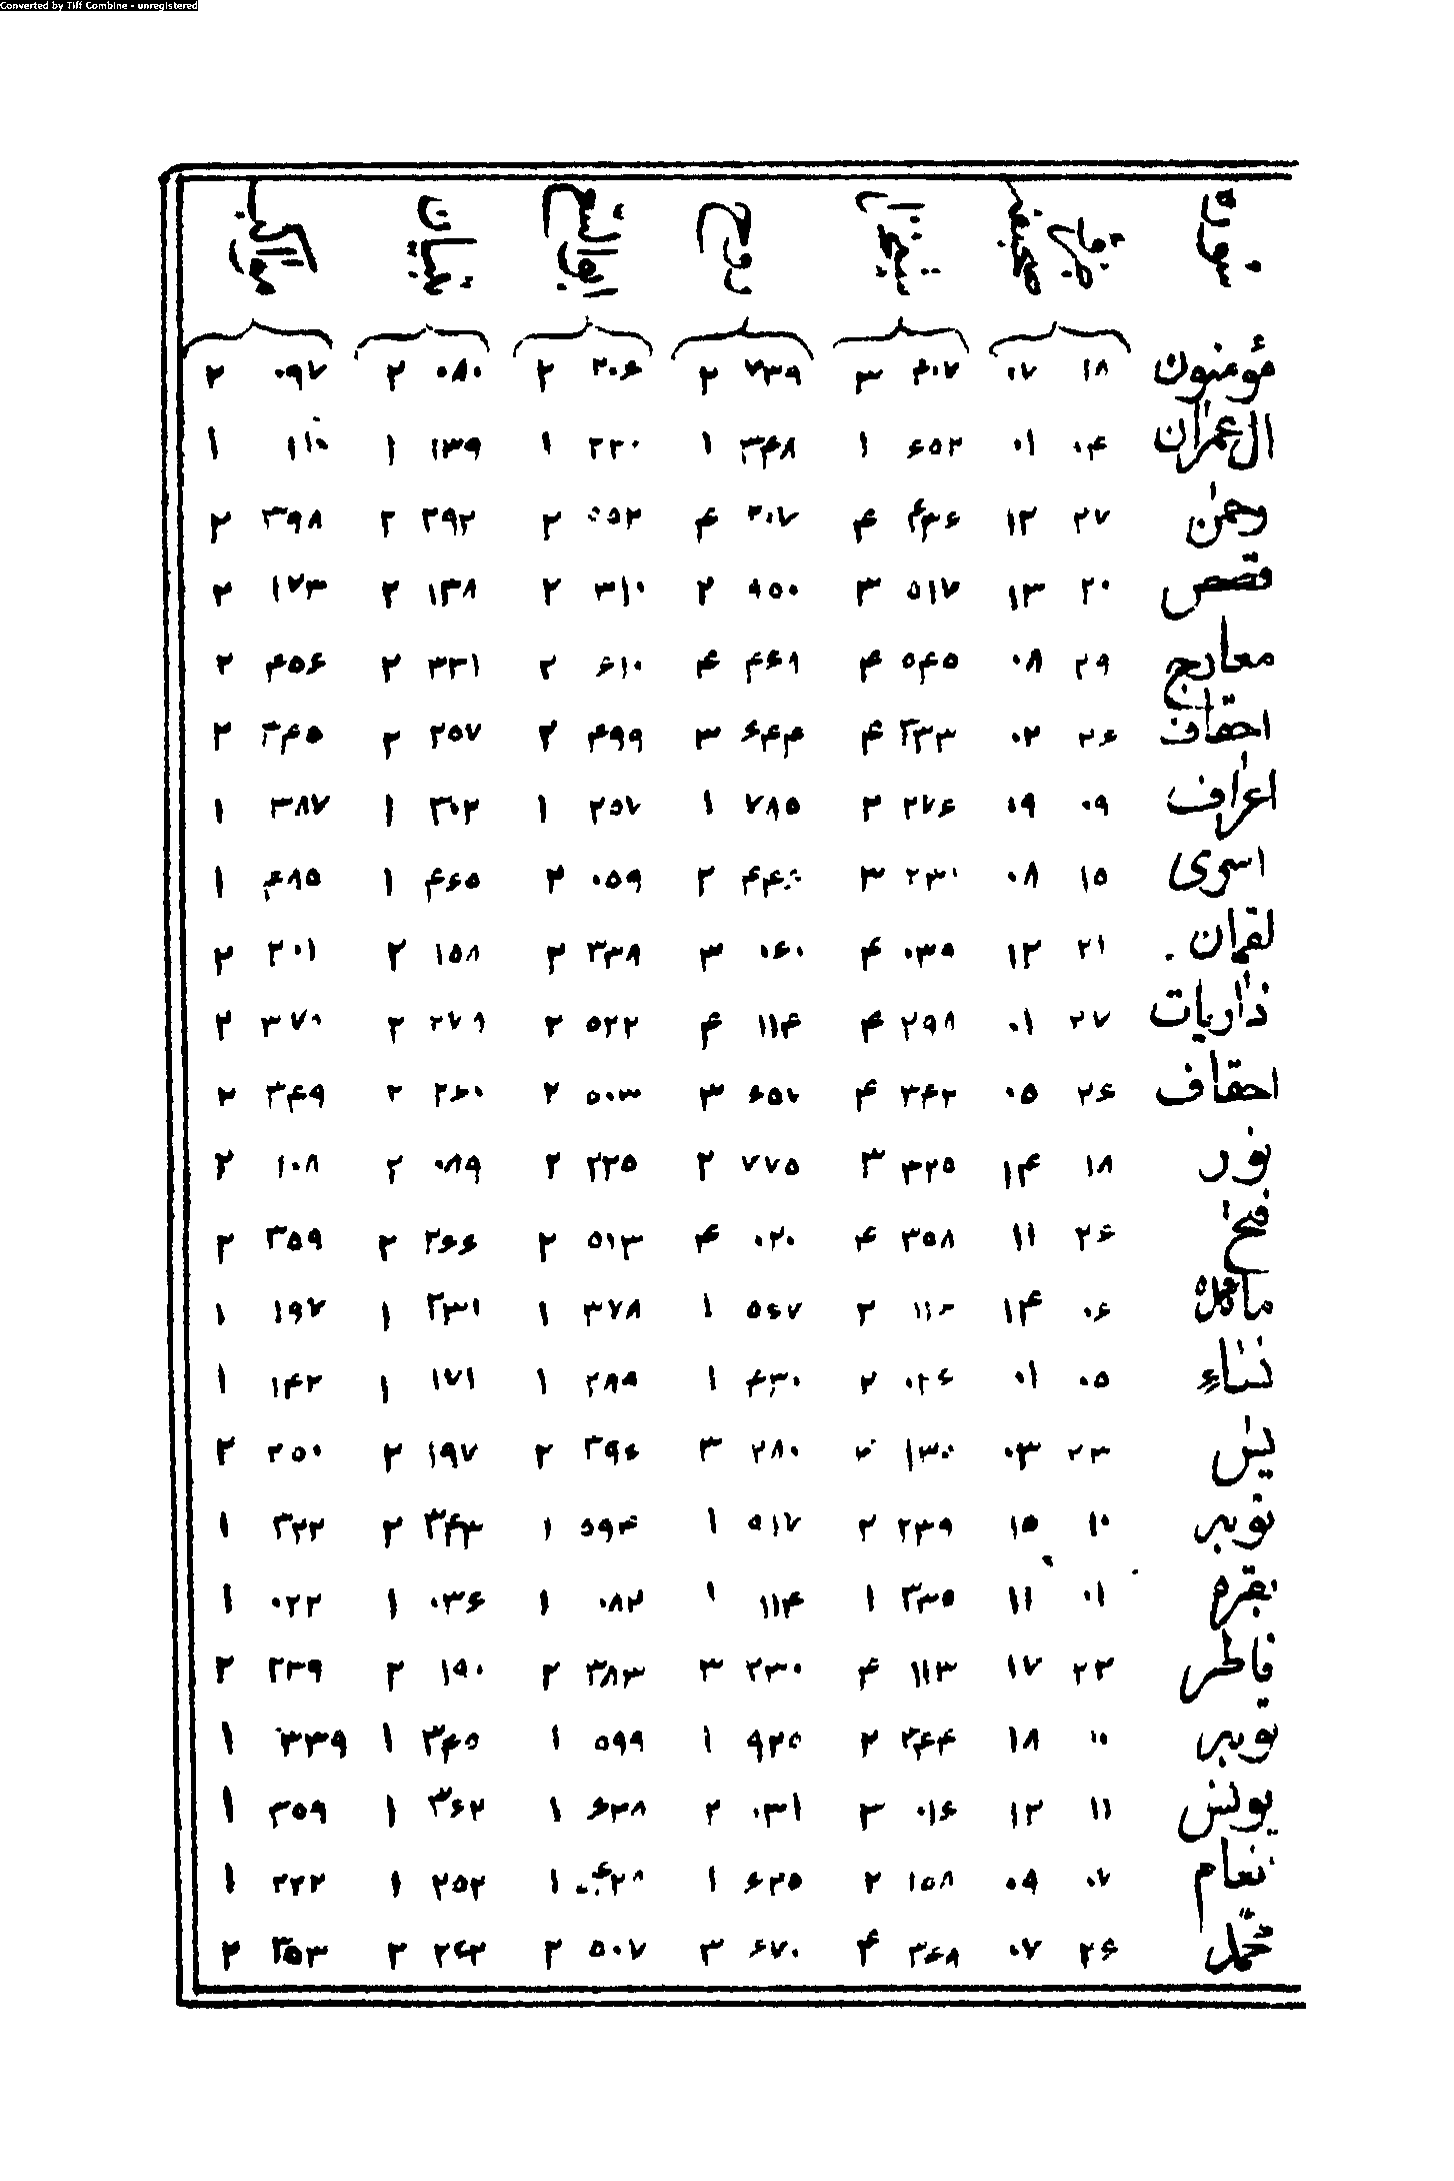 Converted by Tiff Combine - unregistered
سوره جزو صفحه روح ابوالسعود تبیان مواکب
مؤمنون ۱۸ ۰۷ ۴۰۷ ۳ ۷۳۹ ۲ ۲۰۶ ۲ ۰۸۰ ۲ ۰۹۷ ۲
ال عمران ۰۴ ۰۱ ۶۵۲ ۱ ۳۴۸ ۱ ۲۲۰ ۱ ۱۳۹ ۱ ۱۱۰ ۱
رحمن ۲۷ ۱۲ ۴۳۶ ۴ ۲۰۷ ۴ ۵۵۲ ۲ ۲۹۲ ۲ ۳۹۸ ۲
قصص ۲۰ ۱۳ ۵۱۷ ۳ ۹۵۰ ۲ ۳۱۰ ۲ ۱۳۸ ۲ ۱۷۳ ۲
معارج ۲۹ ۰۸ ۵۴۵ ۴ ۴۶۹ ۴ ۶۱۰ ۲ ۳۳۱ ۲ ۴۵۶ ۲
احقاف ۲۶ ۰۲ ۳۳۳ ۴ ۶۴۴ ۳ ۴۹۹ ۲ ۲۵۷ ۲ ۳۴۵ ۲
اعراف ۰۹ ۰۹ ۲۷۶ ۲ ۷۸۵ ۱ ۴۵۷ ۱ ۳۰۲ ۱ ۳۸۷ ۱
اسری ۱۵ ۰۸ ۲۳۱ ۳ ۴۴۰ ۲ ۰۵۹ ۲ ۴۶۵ ۱ ۴۸۵ ۱
لقمان ۲۱ ۱۲ ۰۳۹ ۴ ۰۶۰ ۳ ۳۳۸ ۲ ۱۵۸ ۲ ۲۰۱ ۲
ذاریات ۲۷ ۰۱ ۲۹۸ ۴ ۱۱۴ ۴ ۵۲۲ ۲ ۲۷۹ ۲ ۳۷۰ ۲
احقاف ۲۶ ۰۵ ۳۴۲ ۴ ۶۵۷ ۳ ۵۰۳ ۲ ۲۶۰ ۲ ۳۴۹ ۲
نور ۱۸ ۱۴ ۳۲۵ ۳ ۷۷۵ ۲ ۲۲۵ ۲ ۰۸۹ ۲ ۱۰۸ ۲
فتح ۲۶ ۱۱ ۳۵۸ ۴ ۰۲۰ ۴ ۵۱۳ ۲ ۲۶۶ ۲ ۳۵۹ ۲
مائده ۰۶ ۱۴ ۱۱۳ ۲ ۵۶۷ ۱ ۳۷۸ ۱ ۲۳۱ ۱ ۱۹۷ ۱
نساء ۰۵ ۰۱ ۰۲۶ ۲ ۴۳۰ ۱ ۲۸۹ ۱ ۱۷۱ ۱ ۱۴۲ ۱
یس ۲۳ ۰۳ ۱۳۰ ۲۸۰ ۳ ۳۹۶ ۲ ۱۹۷ ۲ ۲۵۰ ۲
توبه ۱۰ ۱۵ ۲۳۹ ۲ ۹۱۷ ۱ ۵۹۴ ۱ ۳۴۳ ۲ ۳۲۲ ۱
بقره ۰۱ ۱۱ ۳۳۵ ۱ ۱۱۴ ۱ ۰۸۲ ۱ ۰۳۶ ۱ ۰۲۲ ۱
فاطر ۲۲ ۱۷ ۱۱۳ ۴ ۲۳۰ ۳ ۳۸۳ ۲ ۱۹۰ ۲ ۲۳۹ ۲
توبه ۱۰ ۱۸ ۲۴۴ ۲ ۹۲۵ ۱ ۵۹۹ ۱ ۳۴۵ ۱ ۳۳۹ ۱
یونس ۱۱ ۱۲ ۰۱۶ ۳ ۰۳۱ ۲ ۶۳۸ ۱ ۳۶۲ ۱ ۳۵۹ ۱
نعام ۰۷ ۰۹ ۱۵۸ ۲ ۶۲۵ ۱ ۴۲۸ ۱ ۲۵۲ ۱ ۲۲۲ ۱
محمّد ۲۶ ۰۷ ۳۶۸ ۴ ۶۷۰ ۳ ۵۰۷ ۲ ۲۶۳ ۲ ۳۵۳ ۲